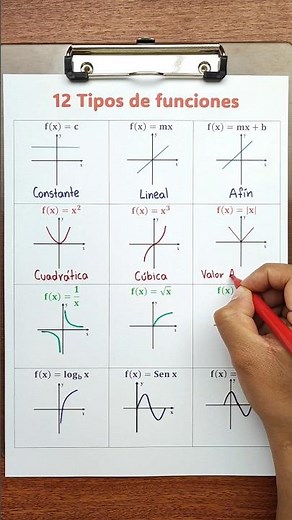 12 Tipos de funciones
f(x) = c f(x) = mx f(x) = mx + b
y y y
x x x
Constante Lineal Afín
f(x) = x² f(x) = x³ f(x) = |x|
y y y
x x
Cuadrática Cúbica Valor A
f(x) = 1/x f(x) = √x f(x)
y y
x x
f(x) = log_b x f(x) = Sen x f(x) =
y y y
x x